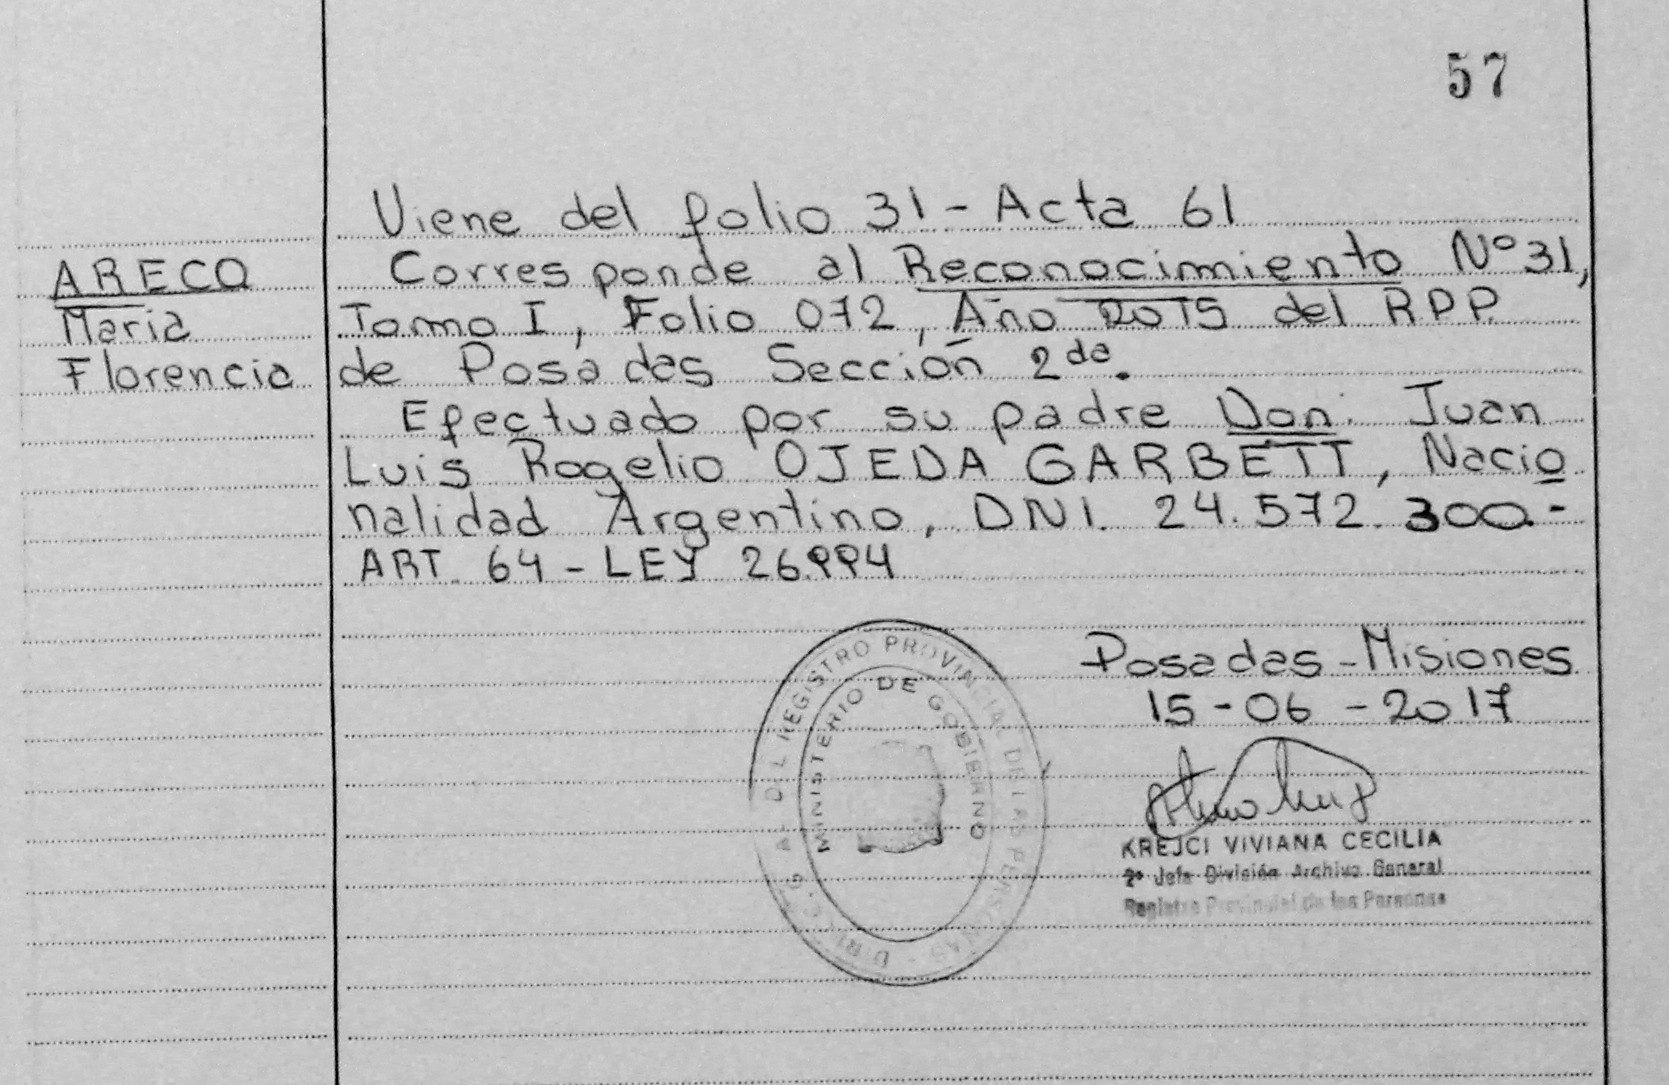 57
Viene del folio 31 - Acta 61
ARECO
Maria
Florencia
Corresponde al Reconocimiento Nº 31,
Tomo I, Folio 072, Año 2015 del RPP
de Posadas Sección 2da.
Efectuado por su padre Don: Juan
Luis Rogelio OJEDA GARBETT, Nacio
nalidad Argentino, DNI. 24.572.300.-
ART. 64 - LEY 26.994
Posadas - Misiones
15 - 06 - 2017
KREJCI VIVIANA CECILIA
2º Jefa División Archivo General
Registro Provincial de las Personas
REGISTRO PROVINCIAL DE LAS PERSONAS
MINISTERIO DE GOBIERNO